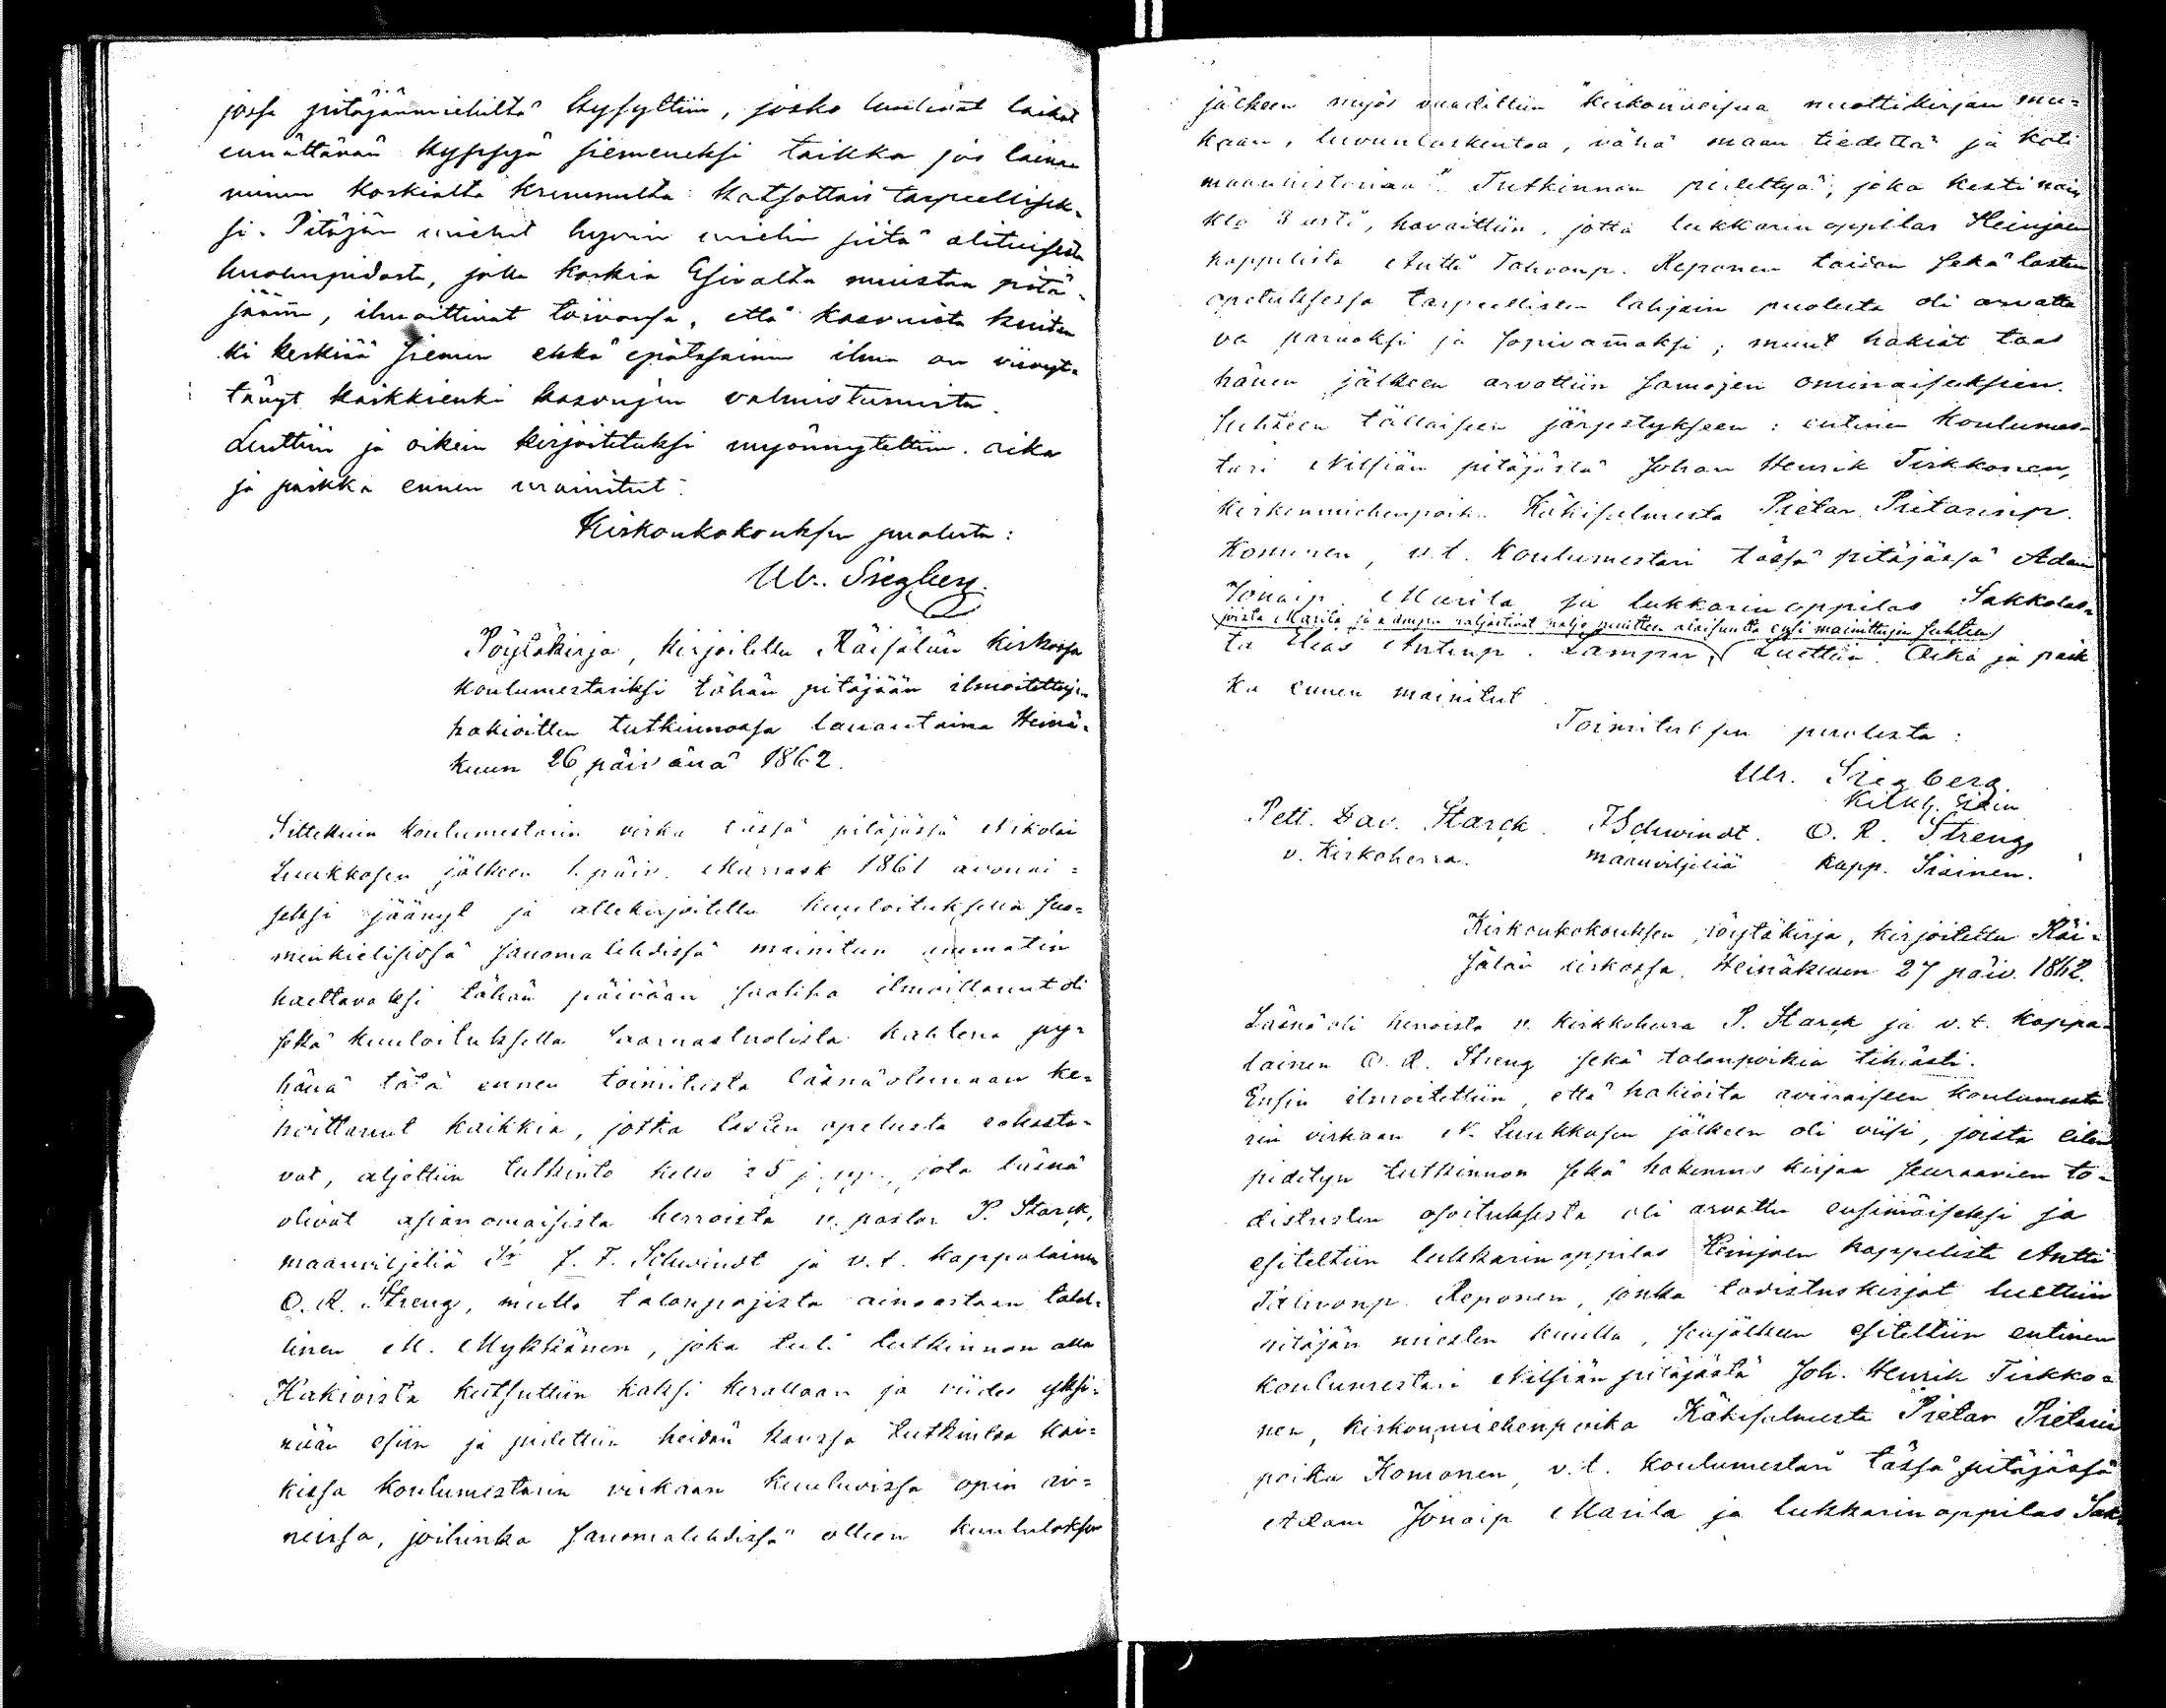 jossa pitäjänmiehiltä kysyttiin, josko luulivat laihot
ennättävän kypsyä siemeneksi taikka jos lainan
ottaminen korkialta kruunulta katsottais tarpeellisek-
si. Pitäjän miehet hyvin mielin siitä alituisesta
huolenpidosta, jolla korkia Esivalta muistaa pitä-
jään, ilmoittivat toivonsa, että kasvuista kuiten
ki keskisiä siemen ehkä epätasainen ilma on viivyt-
tänyt kaikkienki kasvujen valmistumista.
Luettiin ja oikein kirjoitetuksi myönnytettiin. aika
ja paikka ennen mainitut.
Kirkonkokouksen puolesta:
Ulr. Siegberg.
Pöytäkirja, kirjoitettu Räisälän kirkossa
koulumestariksi tähän pitäjään ilmoitettujen
hakioitten tutkinnossa lauantaina Heinä-
kuun 26 päivänä 1862.
Sittekuin koulumestarin virka tässä pitäjässä Nikolai
Luukkosen jälkeen 1. päiv. Marrask 1861 avonai=
seksi jäänyt ja allekirjoitettu kuuloituksella suo=
menkielisissä sanomalehdissä mainitun ammatin
haettavaksi tähän päivään saakka ilmoittanut oli
sekä kuuloituksella saarnastuolista kahtena py=
hänä tätä ennen toimitusta läsnäolemaan ke=
hoittanut kaikkia, jotka lasten opetusta rakasta=
vat, aljettiin tutkinto kello 5 j. pp., jota läsnä
olivat asianomaisista herroista v. pastor P. Starck,
maanviljeliä Hr J. F. Schwindt ja v.t. kappalainen
O. R. Streng, mutta talonpojista ainoastaan talol-
linen M. Mykkänen, joka tuli tutkinnon alla
Hakioista kutsuttiin kaksi kerallaan ja viides yksi=
nään esiin ja pidettiin heidän kanssa tutkintoa kai=
kissa koulumestarin virkaan kuuluvissa opin ai=
neissa, joihinka sanomalehdissä olleen kuulutuksen
jälkeen myös vaadittiin "kirkonveisua nuottikirjan mu=
kaan, luvunlaskentoa, vähä maan tiedettä ja koti
maanhistoriaa". Tutkinnon pidettyä, joka kesti noin
klo 8 asti, havaittiin, jotta lukkarin oppilas Heinjoen
kappelista Antti Tahvonp. Reponen taidon sekä lasten
opetuksessa tarpeellisten lahjain puolesta oli arvatta
va paraaksi ja sopivammaksi; muut hakiat taas
hänen jälkeen arvattiin samojen ominaisuksien
suhteen tällaiseen järjestykseen: entinen koulumes=
tari Nilsiän pitäjästä Johan Henrik Tirkkonen,
kirkonmiehenpoika Käkisalmesta Pietar Pietarinp.
Komonen, v.t. koulumestari tässä pitäjässä Adam
Jonaip. Marila ja lukkarin oppilas Sakkolas=
ta Elias Antinp. Lampu, Luettiin. Aika ja paik
ka ennen mainitut.
Toimituksen puolesta:
Ulr. Siegberg.
Pett. Dav. Starck. J Schwindt. O. R. Streng,
v. Kirkoherra. maanviljeliä kapp. Siainen.
Kirkonkokouksen pöytäkirja, kirjoitettu Räi=
sälän kirkossa, Heinäkuun 27 päiv. 1862.
Läsnä oli herroista v. kirkkoherra P. Starck ja v.t. kappa-
lainen O. R. Streng sekä talonpoikia tihiästi.
Ensin ilmoitettiin, että hakioita avonaiseen koulumesta
rin virkaan N. Luukkosen jälkeen oli viisi, joista eilen
pidetyn tutkinnon sekä hakemus kirjaa seuraavien to=
distusten osoituksesta oli arvattu ensimäiseksi ja
esiteltiin lukkarin oppilas Heinjoen kappelista Antti
Tahvonp. Reponen, jonka todistuskirjat luettiin
pitäjän miesten kuulla, senjälkeen esiteltiin entinen
koulumestari Nilsiän pitäjästä Joh. Henrik Tirkko=
nen, kirkonmiehenpoika Käkisalmesta Pietar Pietarin
poika Komonen, v.t. koulumestari tässä pitäjässä
Adam Jonaip Marila ja lukkarin oppilas Sak